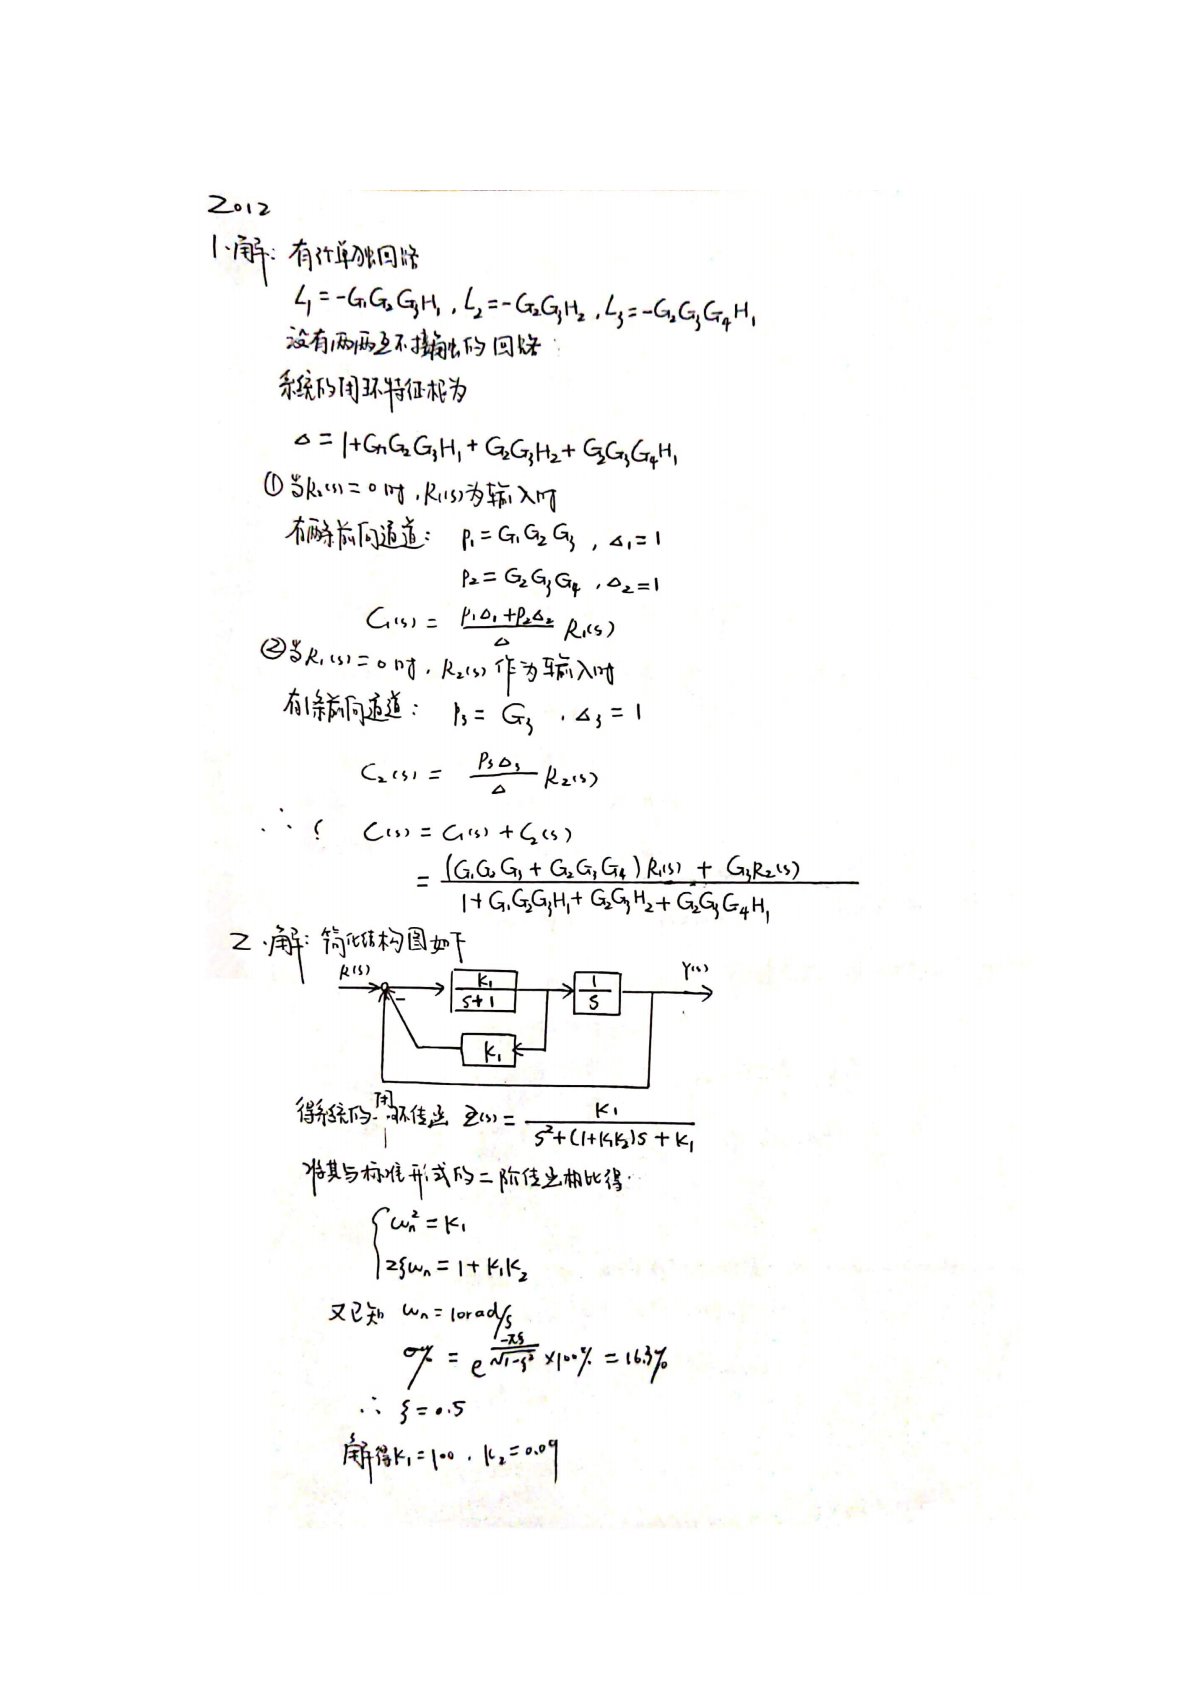 2012
1.解: 有3个单独回路
L₁=-G₁G₂G₃H₁, L₂=-G₂G₃H₂, L₃=-G₂G₃G₄H₁
没有两两互不接触的回路
系统的闭环特征根为
Δ=1+G₁G₂G₃H₁+G₂G₃H₂+G₂G₃G₄H₁
①当R₂(s)=0时, R₁(s)为输入时
有两条前向通道: P₁=G₁G₂G₃, Δ₁=1
P₂=G₂G₃G₄, Δ₂=1
C₁(s)= (P₁Δ₁+P₂Δ₂)/Δ R₁(s)
②当R₁(s)=0时, R₂(s)作为输入时
有1条前向通道: P₃=G₃, Δ₃=1
C₂(s)= P₃Δ₃/Δ R₂(s)
∴ C(s)=C₁(s)+C₂(s)
= ((G₁G₂G₃+G₂G₃G₄)R₁(s)+G₃R₂(s))/(1+G₁G₂G₃H₁+G₂G₃H₂+G₂G₃G₄H₁)
2.解: 简化结构图如下
R(s) - K₁/(s+1) 1/s Y(s)
K₁
得系统的闭环传函 Φ(s)= K₁/(s²+(1+K₁K₂)s+K₁)
将其与标准形式的二阶传函相比得
ωn²=K₁
2ξωn=1+K₁K₂
又已知 ωn=10rad/s
σ%=e^(-πξ/√(1-ξ²))×100%=16.3%
∴ ξ=0.5
解得K₁=100, K₂=0.09